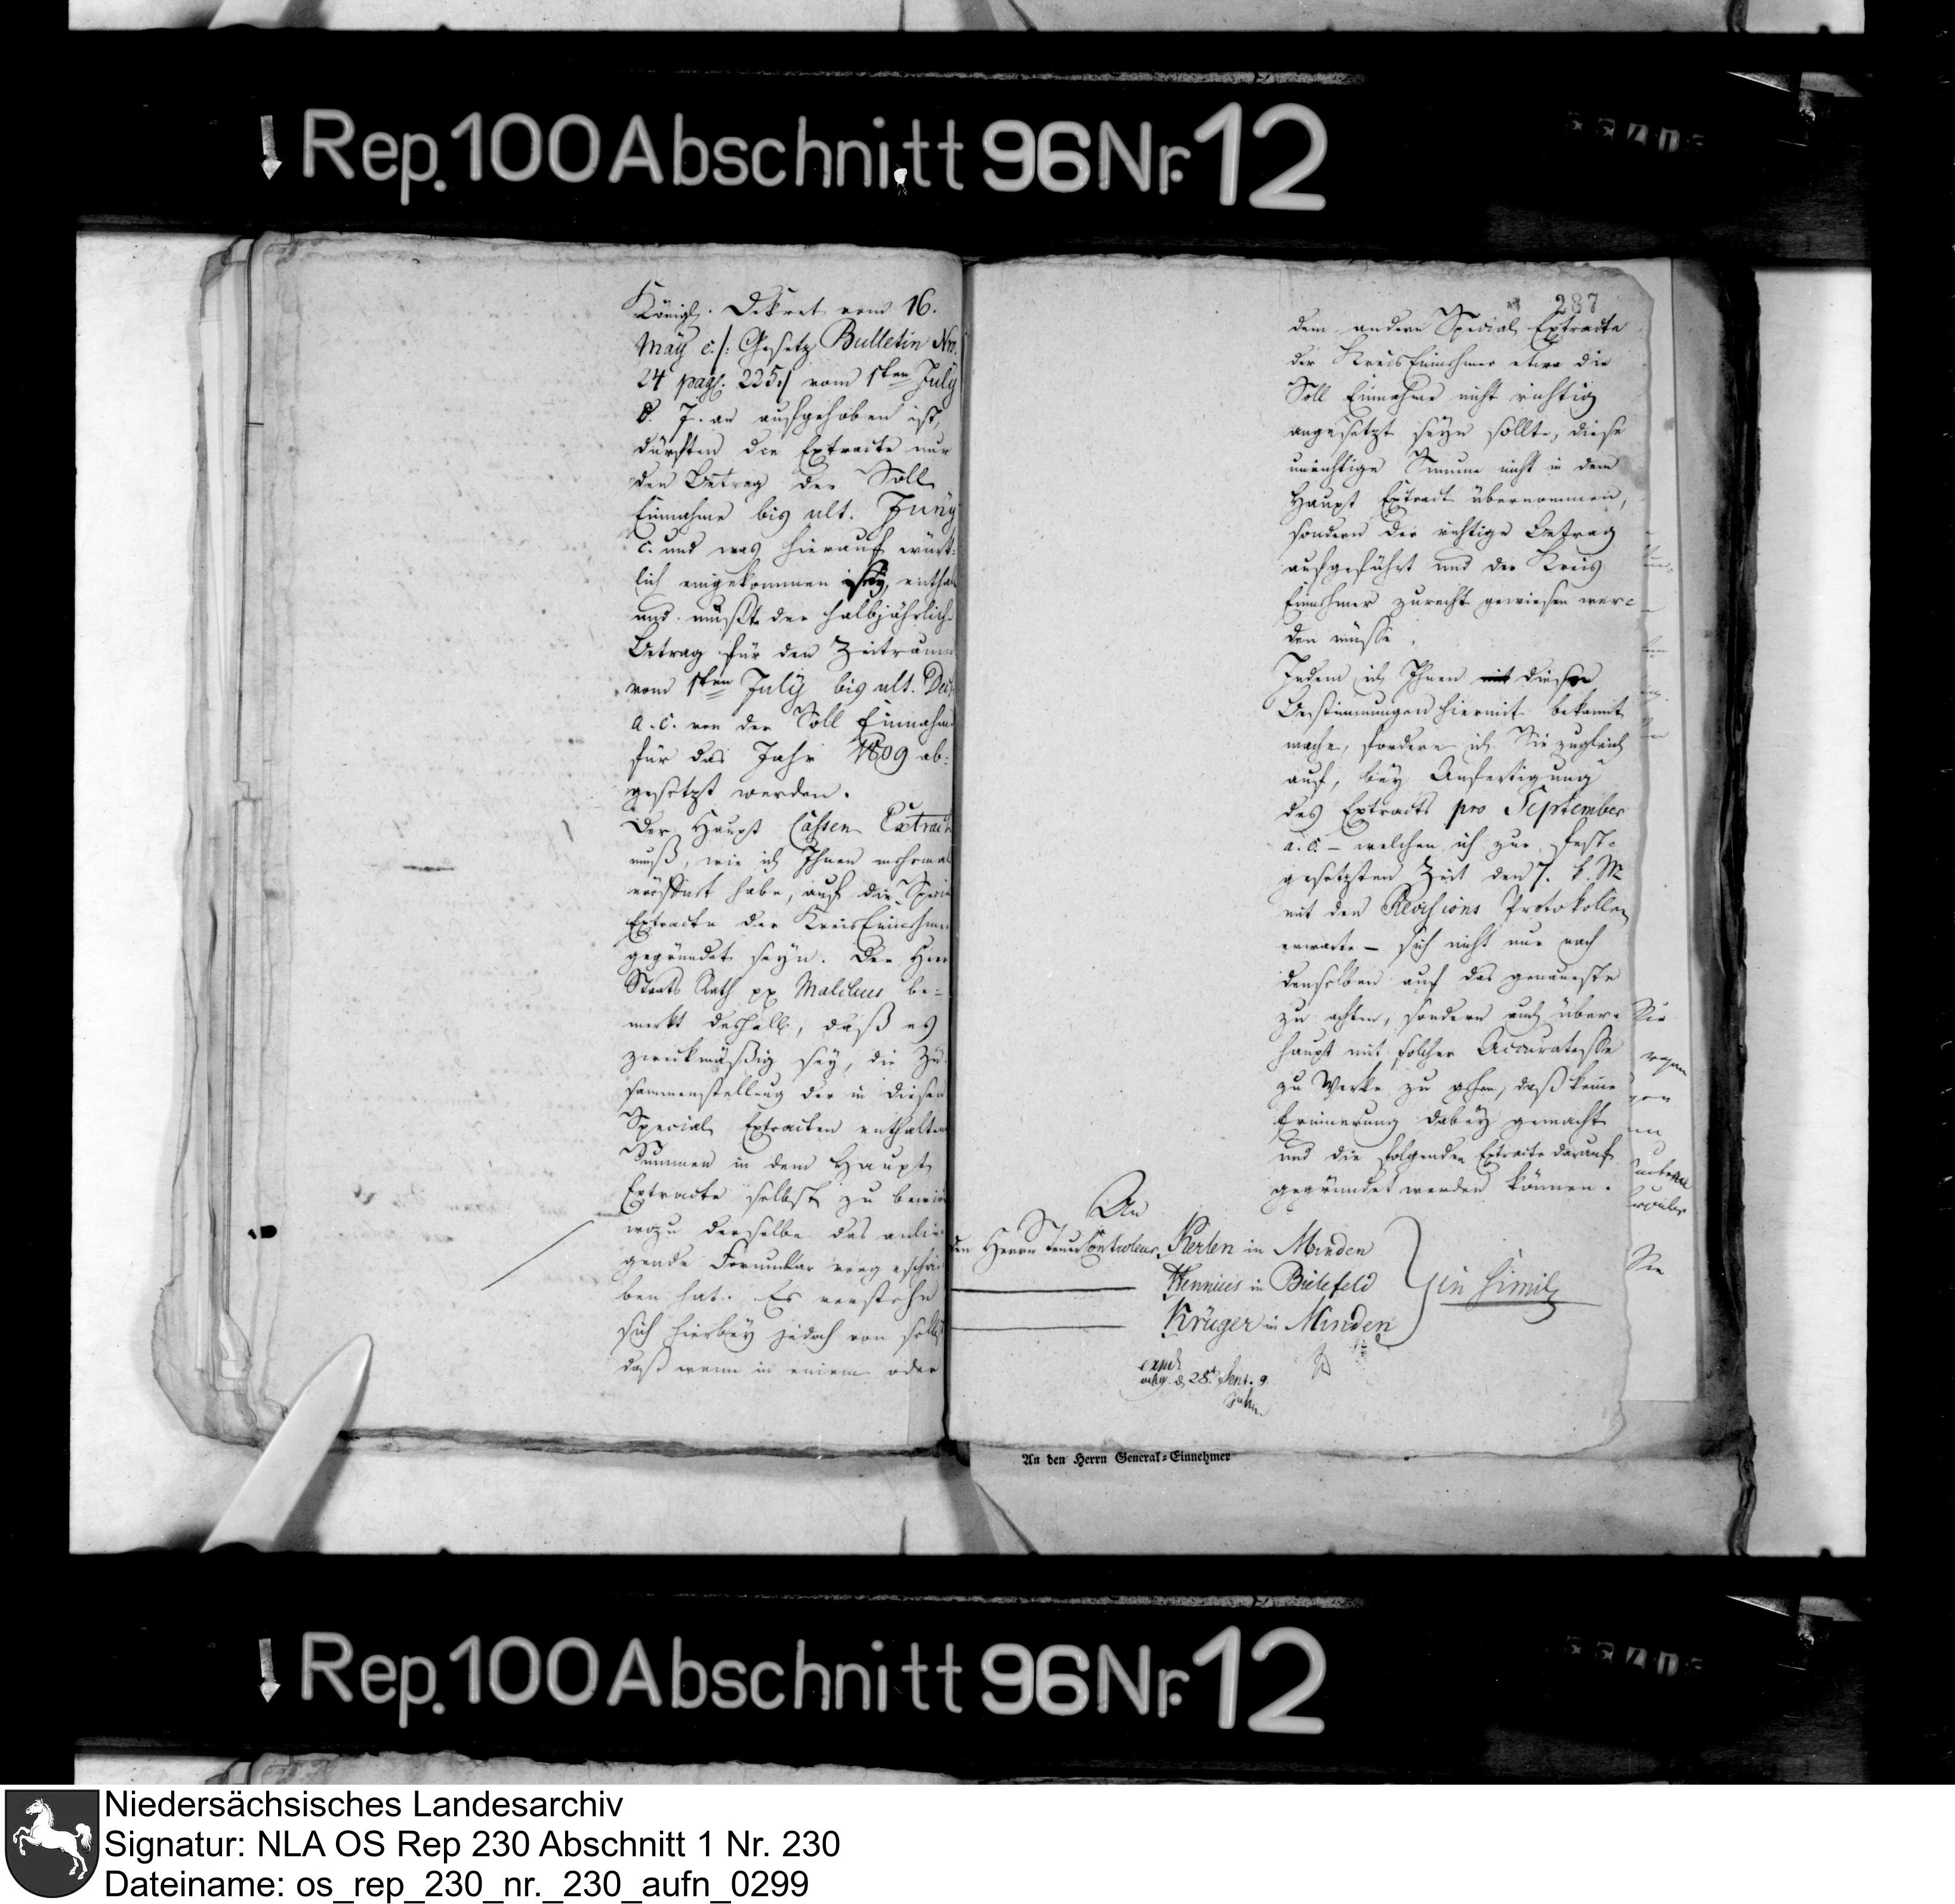 Rep. 100 Abschnitt 96 Nr. 12
Königl. Dekret vom 16.
May c. /: Gesetz Bulletin Nro.
24 pag. 225 :/ vom 1sten July
d. J. an aufgehoben ist,
dürften die Extracte nur
den Betrag der Soll
Einnahme bis ult. Juny
c. und was hierauf würk-
lich eingekommen sey, enthal
und müßte der halbjährliche
Betrag für den Zeitraum
vom 1sten July bis ult. Dec
a. c. von der Soll Einnahm
für das Jahr 1809 ab-
gesetzt werden.
Der Haupt Cassen Extract
muß, wie ich Ihnen mehrmal
eröffnet habe, auf die Speci
Extracte der KreisEinnehme
gegründet seyn. Der Herr
Staats Rath pp Malchus be-
merkt deshalb, daß es
zweckmäßig sey, die Zu
sammenstellung der in diesen
Special Extracten enthalten
Summen in dem Haupt
Extracte selbst zu bewir
wozu derselbe das anlie
gende Formular vorgeschrie
ben hat. Es verstehe
sich hierbey jedoch von selbst
daß wenn in einem oder
287
dem andern Special Extracte
der KreisEinnehmer etwa die
Soll Einnahme nicht richtig
angesetzt seyn sollte, diese
unrichtige Summe nicht in dem
Haupt Extract übernommen,
sondern der richtige Betrag
aufgeführt und der Kreis
Einnehmer zurecht gewiesen wer-
den müsse.
Indem ich Ihnen mit diese
Bestimmungen hiermit bekannt
mache, fordere ich Sie zugleich
auf, bey Anfertigung
des Extracts pro September
a. c. – welchen ich zur fest-
gesetzten Zeit den 7. k. M
mit den Revisions Protokollen
erwarte – sich nicht nur nach
denselben auf das genaueste
zu achten, sondern auch über-
haupt mit solcher Accuratesse
zu Werke zu gehen, daß keine
Erinnerung dabey gemacht
und die folgenden Extracte darauf
gegründet werden können.
An
den Herrn Controleur Kerlen in Minden
Hennies in Bielefeld
Krüger in Minden
in simili
exped
d 28. Sept. 9
Sie
Sie
An den Herrn General-Einnehmer
Rep. 100 Abschnitt 96 Nr. 12
Niedersächsisches Landesarchiv
Signatur: NLA OS Rep 230 Abschnitt 1 Nr. 230
Dateiname: os_rep_230_nr._230_aufn_0299